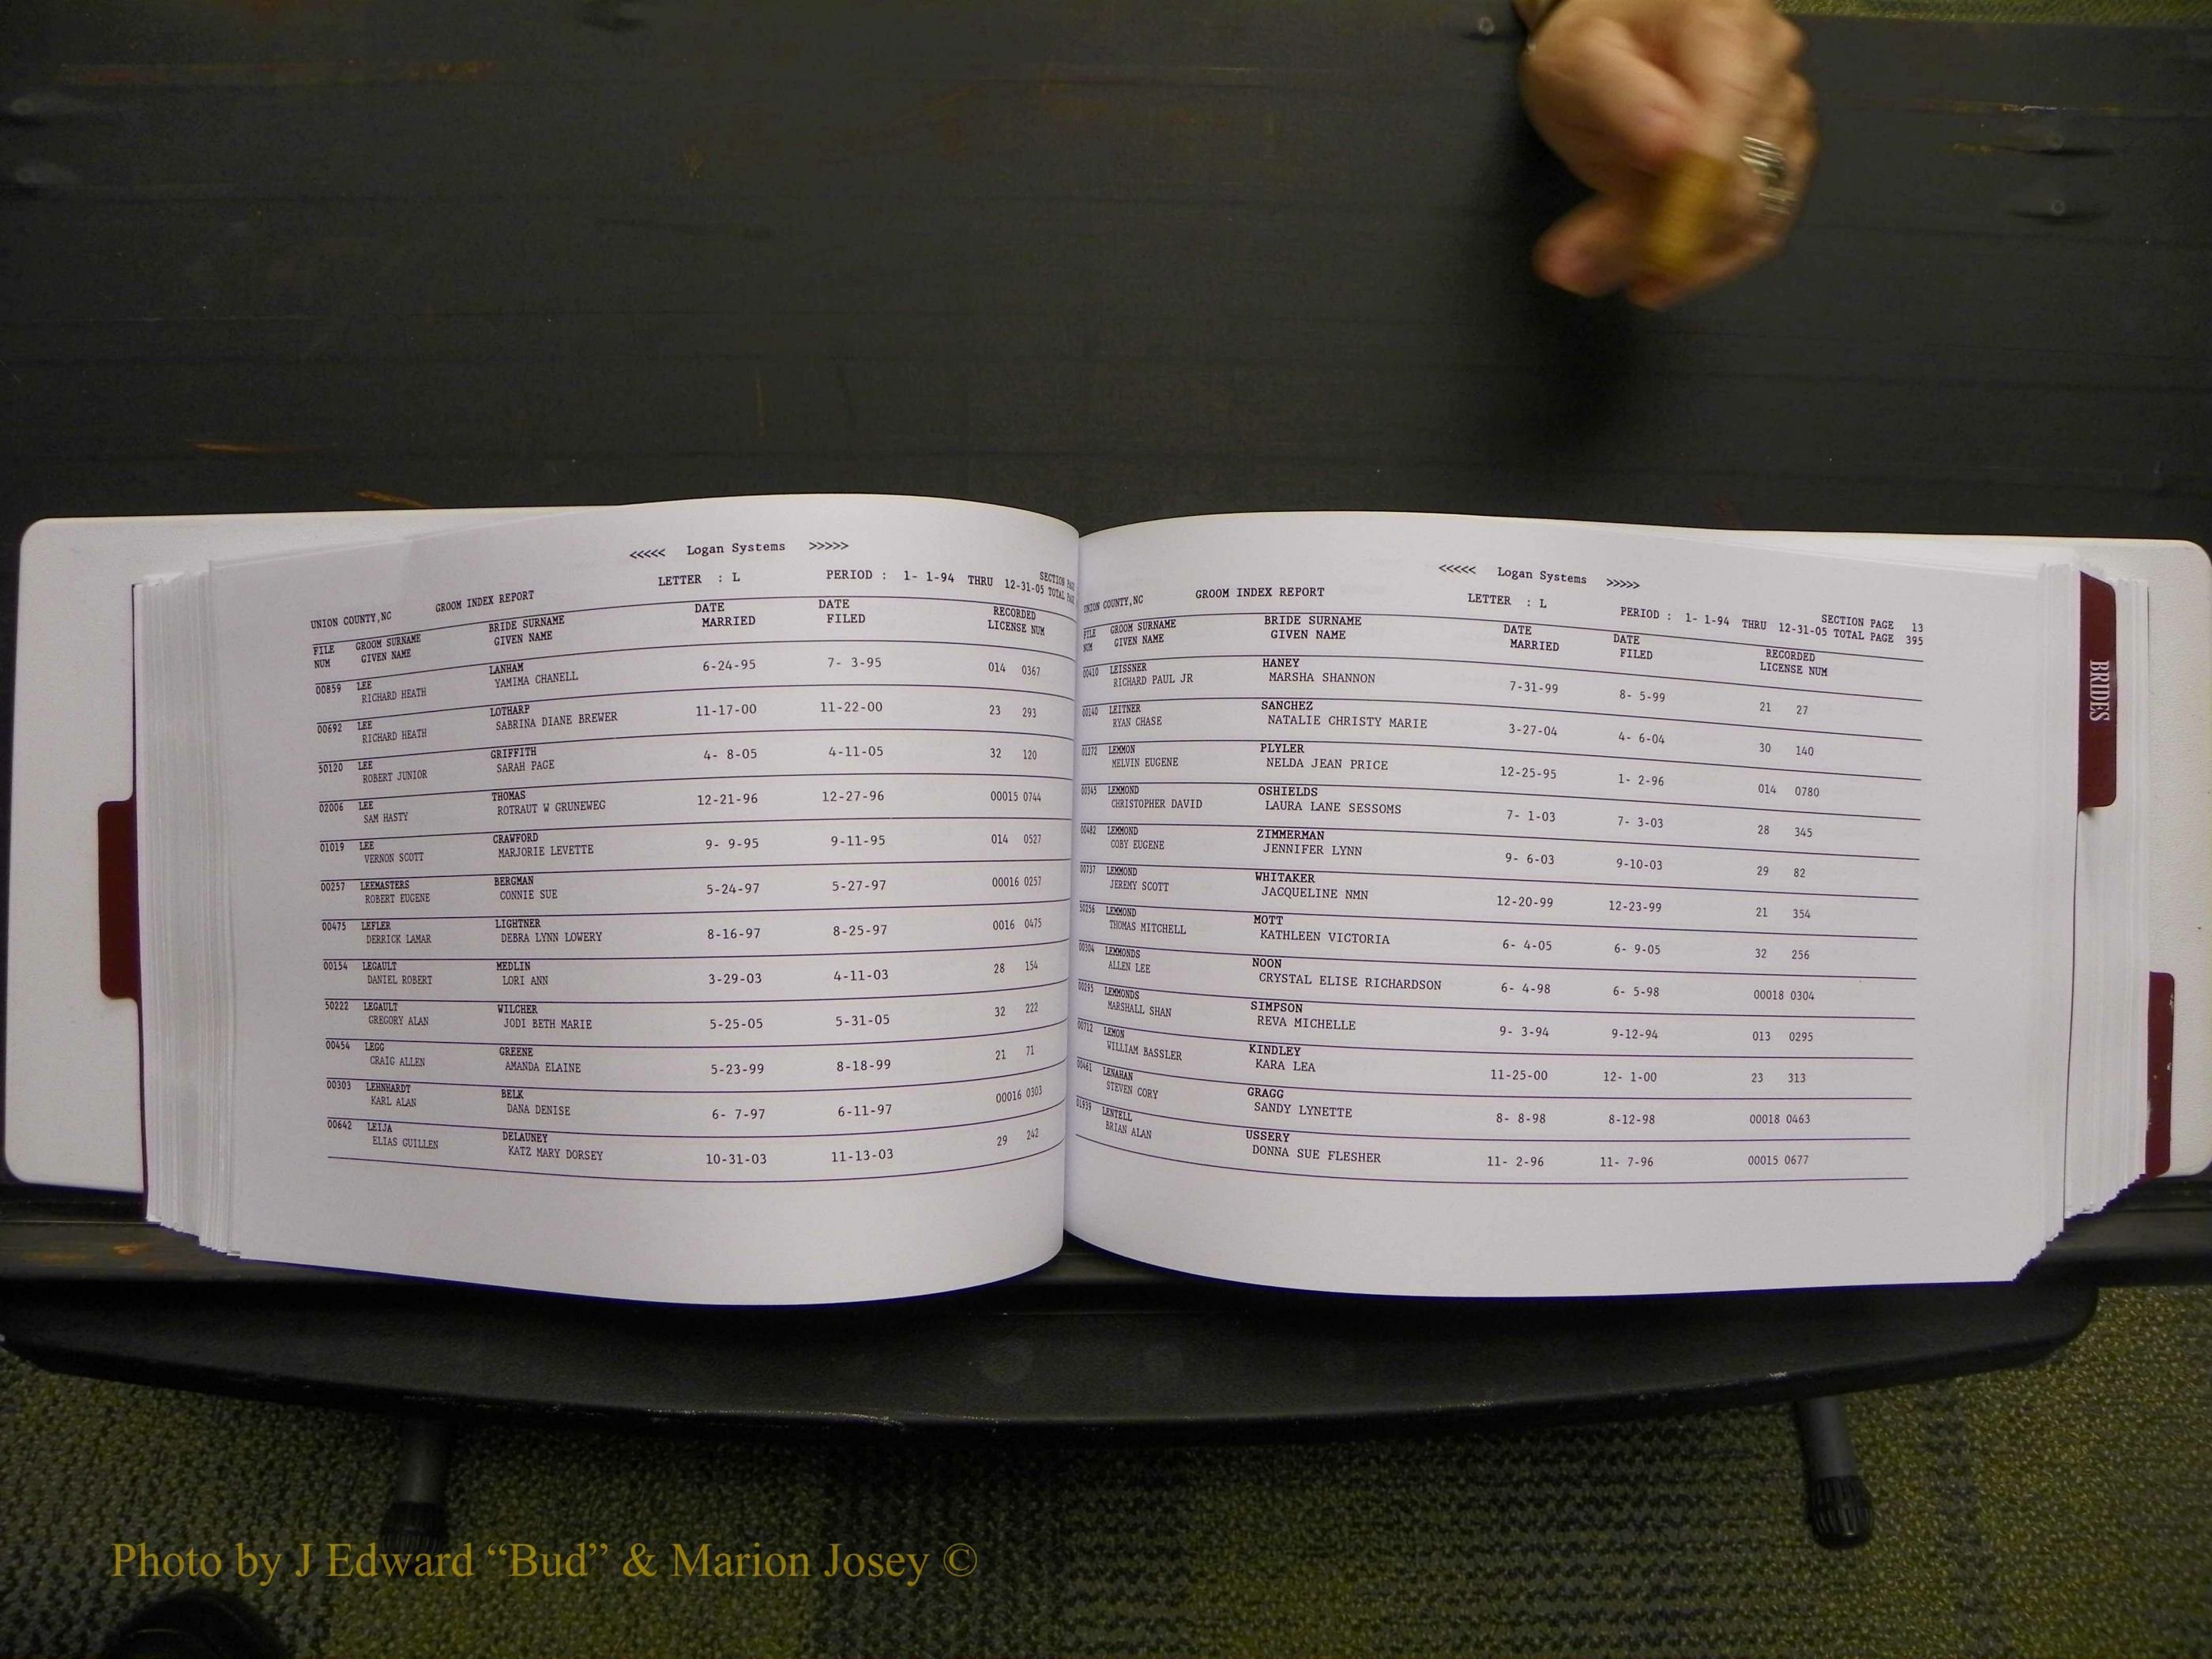 <<<<< Logan Systems >>>>>
UNION COUNTY,NC GROOM INDEX REPORT LETTER : L PERIOD : 1- 1-94 THRU 12-31-05 SECTION TOTAL
FILE NUM GROOM SURNAME GIVEN NAME BRIDE SURNAME GIVEN NAME DATE MARRIED DATE FILED RECORDED LICENSE NUM
00859 LEE LANHAM 6-24-95 7- 3-95 014 0367
RICHARD HEATH YAMIMA CHANELL
00692 LEE LOTHARP 11-17-00 11-22-00 23 293
RICHARD HEATH SABRINA DIANE BREWER
50120 LEE GRIFFITH 4- 8-05 4-11-05 32 120
ROBERT JUNIOR SARAH PAGE
02006 LEE THOMAS 12-21-96 12-27-96 00015 0744
SAM HASTY ROTRAUT W GRUNEWEG
01019 LEE CRAWFORD 9- 9-95 9-11-95 014 0527
VERNON SCOTT MARJORIE LEVETTE
00257 LEEMASTERS BERGMAN 5-24-97 5-27-97 00016 0257
ROBERT EUGENE CONNIE SUE
00475 LEFLER LIGHTNER 8-16-97 8-25-97 0016 0475
DERRICK LAMAR DEBRA LYNN LOWERY
00154 LEGAULT MEDLIN 3-29-03 4-11-03 28 154
DANIEL ROBERT LORI ANN
50222 LEGAULT WILCHER 5-25-05 5-31-05 32 222
GREGORY ALAN JODI BETH MARIE
00454 LEGG GREENE 5-23-99 8-18-99 21 71
CRAIG ALLEN AMANDA ELAINE
00303 LEHNHARDT BELK 6- 7-97 6-11-97 00016 0303
KARL ALAN DANA DENISE
00642 LEIJA DELAUNEY 10-31-03 11-13-03 29 242
ELIAS GUILLEN KATZ MARY DORSEY
<<<<< Logan Systems >>>>>
UNION COUNTY,NC GROOM INDEX REPORT LETTER : L PERIOD : 1- 1-94 THRU 12-31-05 SECTION PAGE 13
TOTAL PAGE 395
FILE NUM GROOM SURNAME GIVEN NAME BRIDE SURNAME GIVEN NAME DATE MARRIED DATE FILED RECORDED LICENSE NUM
00410 LEISSNER HANEY 7-31-99 8- 5-99 21 27
RICHARD PAUL JR MARSHA SHANNON
00140 LEITNER SANCHEZ 3-27-04 4- 6-04 30 140
RYAN CHASE NATALIE CHRISTY MARIE
01272 LEMMON PLYLER 12-25-95 1- 2-96 014 0780
MELVIN EUGENE NELDA JEAN PRICE
00345 LEMMOND OSHIELDS 7- 1-03 7- 3-03 28 345
CHRISTOPHER DAVID LAURA LANE SESSOMS
00482 LEMMOND ZIMMERMAN 9- 6-03 9-10-03 29 82
COBY EUGENE JENNIFER LYNN
00737 LEMMOND WHITAKER 12-20-99 12-23-99 21 354
JEREMY SCOTT JACQUELINE NMN
50256 LEMMOND MOTT 6- 4-05 6- 9-05 32 256
THOMAS MITCHELL KATHLEEN VICTORIA
00304 LEMMONDS NOON 6- 4-98 6- 5-98 00018 0304
ALLEN LEE CRYSTAL ELISE RICHARDSON
00295 LEMMONDS SIMPSON 9- 3-94 9-12-94 013 0295
MARSHALL SHAN REVA MICHELLE
00712 LEMON KINDLEY 11-25-00 12- 1-00 23 313
WILLIAM BASSLER KARA LEA
00461 LENAHAN GRAGG 8- 8-98 8-12-98 00018 0463
STEVEN CORY SANDY LYNETTE
01939 LENTELL USSERY 11- 2-96 11- 7-96 00015 0677
BRIAN ALAN DONNA SUE FLESHER
BRIDES
Photo by J Edward “Bud” & Marion Josey ©